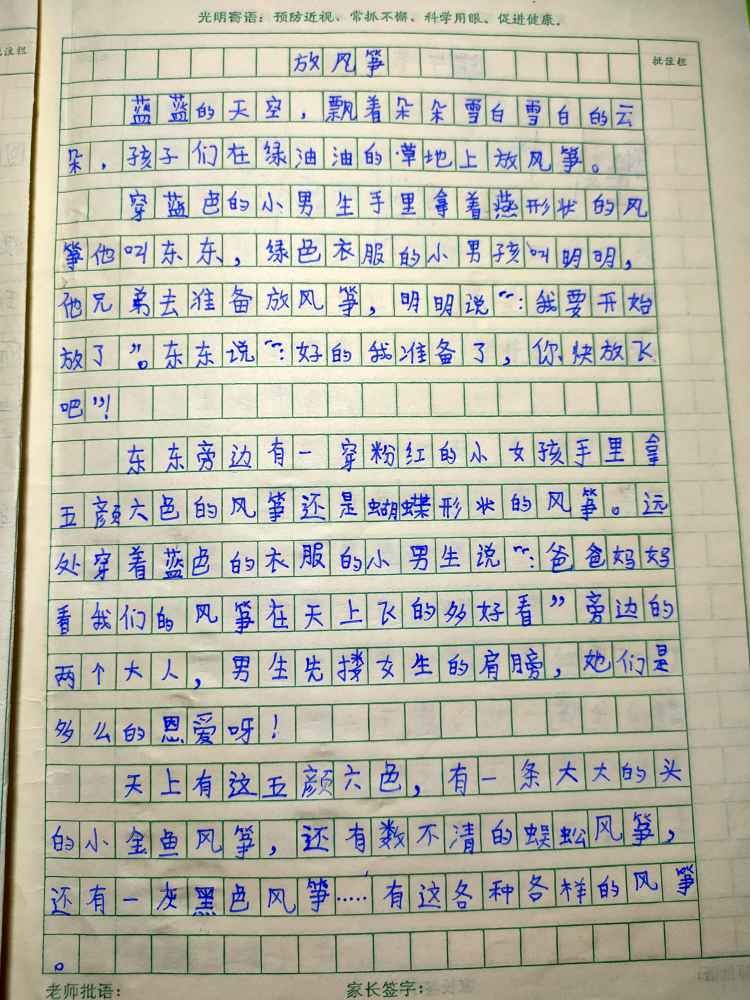 光明寄语：预防近视、常抓不懈、科学用眼、促进健康.
批注栏
放风筝
蓝蓝的天空，飘着朵朵雪白雪白的云
朵，孩子们在绿油油的草地上放风筝。
穿蓝色的小男生手里拿着燕形状的风
筝他叫东东，绿色衣服的小男孩叫明明，
他兄弟去准备放风筝，明明说“：我要开始
放了”。东东说“：好的我准备了，你快放飞
吧”！
东东旁边有一穿粉红的小女孩手里拿
五颜六色的风筝还是蝴蝶形状的风筝。远
处穿着蓝色的衣服的小男生说“：爸爸妈妈
看我们的风筝在天上飞的多好看”旁边的
两个大人，男生先搂女生的肩膀，她们是
多么的恩爱呀！
天上有这五颜六色，有一条大大的头
的小金鱼风筝，还有数不清的蜈蚣风筝，
还有一灰黑色风筝……有这各种各样的风筝
。
老师批语： 家长签字：